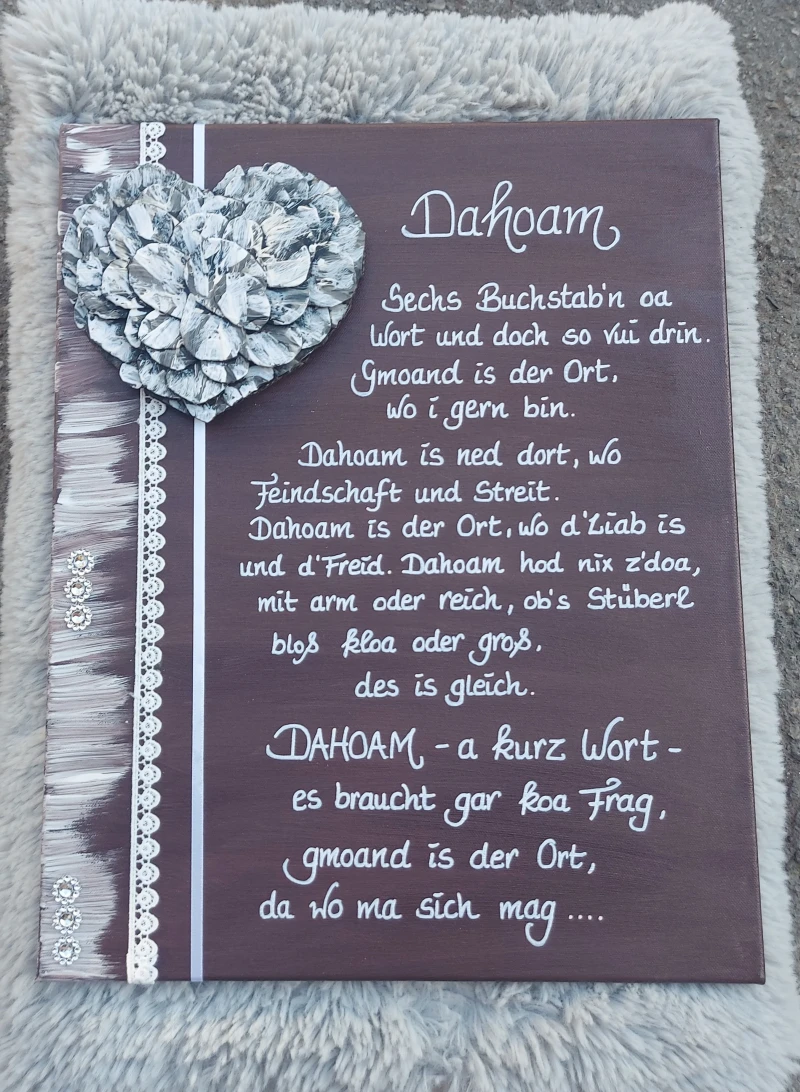 Dahoam
Sechs Buchstab'n oa
Wort und doch so vui drin.
Gmoand is der Ort,
wo i gern bin.
Dahoam is ned dort, wo
Feindschaft und Streit.
Dahoam is der Ort, wo d'Liab is
und d'Freid. Dahoam hod nix z'doa,
mit arm oder reich, ob's Stüberl
bloß kloa oder groß,
des is gleich.
DAHOAM - a kurz Wort -
es braucht gar koa Frag,
gmoand is der Ort,
da wo ma sich mag ....